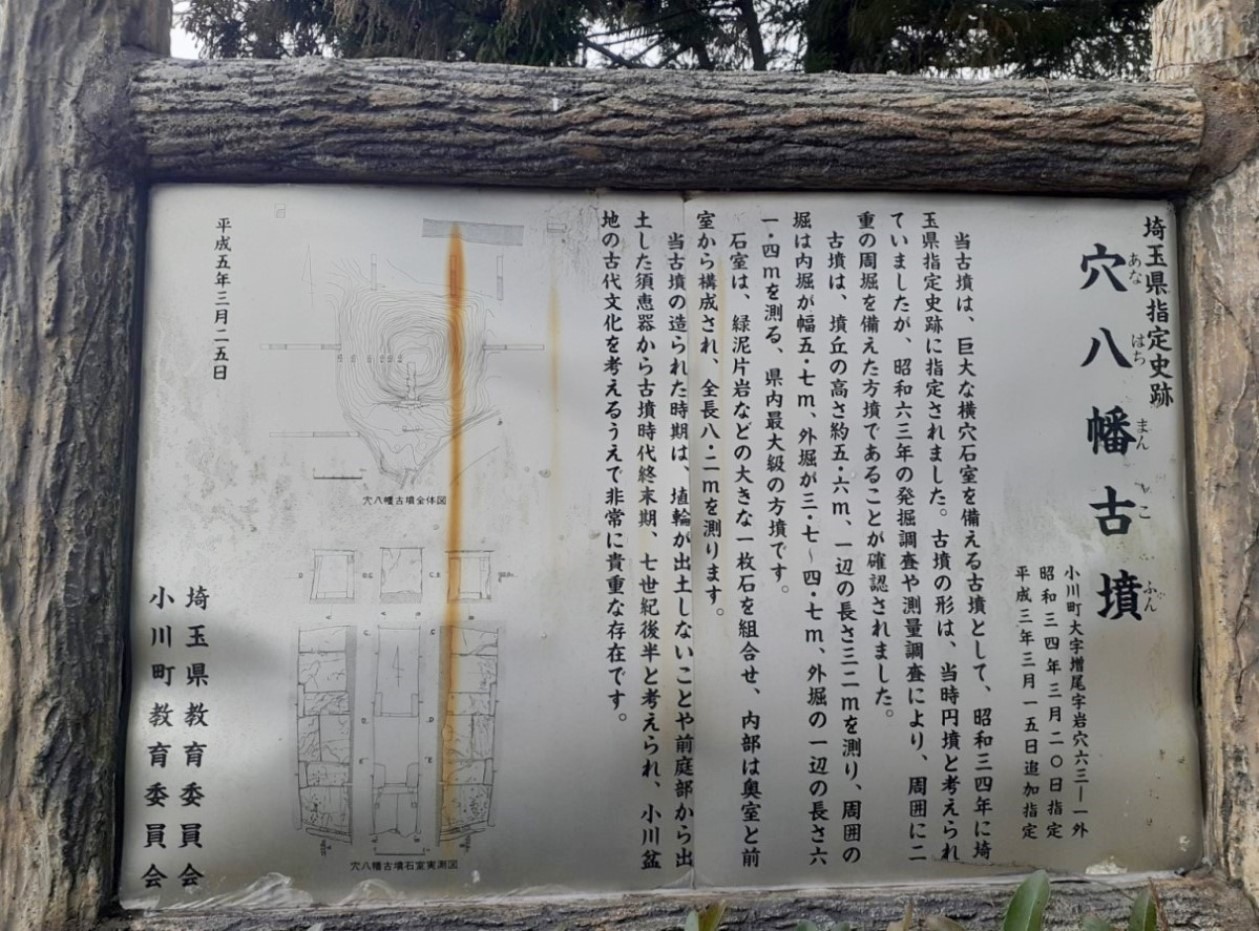 埼玉県指定史跡
穴八幡古墳
あなはちまんこふん
小川町大字増尾字岩穴六三ー一外
昭和三四年三月二〇日指定
平成三年三月一五日追加指定
当古墳は、巨大な横穴石室を備える古墳として、昭和三四年に埼
玉県指定史跡に指定されました。古墳の形は、当時円墳と考えられ
ていましたが、昭和六三年の発掘調査や測量調査により、周囲に二
重の周堀を備えた方墳であることが確認されました。
古墳は、墳丘の高さ約五・六m、一辺の長さ三二mを測り、周囲の
堀は内堀が幅五・七m、外堀が三・七～四・七m、外堀の一辺の長さ六
一・四mを測る、県内最大級の方墳です。
石室は、緑泥片岩などの大きな一枚石を組合せ、内部は奥室と前
室から構成され、全長八・二mを測ります。
当古墳の造られた時期は、埴輪が出土しないことや前庭部から出
土した須恵器から古墳時代終末期、七世紀後半と考えられ、小川盆
地の古代文化を考えるうえで非常に貴重な存在です。
穴八幡古墳全体図
穴八幡古墳石室実測図
平成五年三月二五日
埼玉県教育委員会
小川町教育委員会